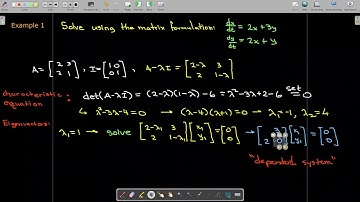 Example 1
Solve using the matrix formulation: dx/dt = 2x+3y
dy/dt = 2x+y
A = [2 3; 2 1], I = [1 0; 0 1], A-λI = [2-λ 3; 2 1-λ]
characteristic equation: det(A-λI) = (2-λ)(1-λ) - 6 = λ²-3λ+2-6 set = 0
↳ λ²-3λ-4=0 → (λ-4)(λ+1)=0 → λ₁=-1, λ₂=4
Eigenvectors:
λ₁=1 → solve [2-λ₁ 3; 2 1-λ₁][x₁; y₁] = [0; 0] → [ 3; 2 0][x₁; y₁] = [0; 0]
"dependent system"